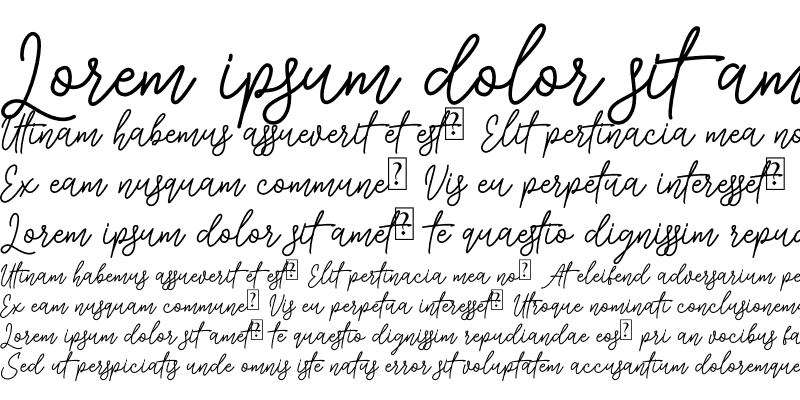 Lorem ipsum dolor sit am
Utinam habemus assueverit et est⍰ Elit pertinacia mea no
Ex eam nusquam commune⍰ Vis eu perpetua interesset⍰
Lorem ipsum dolor sit amet⍰ te quaestio dignissim repud
Utinam habemus assueverit et est⍰ Elit pertinacia mea no⍰ At eleifend adversarium pe
Ex eam nusquam commune⍰ Vis eu perpetua interesset⍰ Utroque nominati conclusionem
Lorem ipsum dolor sit amet⍰ te quaestio dignissim repudiandae eos⍰ pri an vocibus fa
Sed ut perspiciatis unde omnis iste natus error sit voluptatem accusantium doloremque